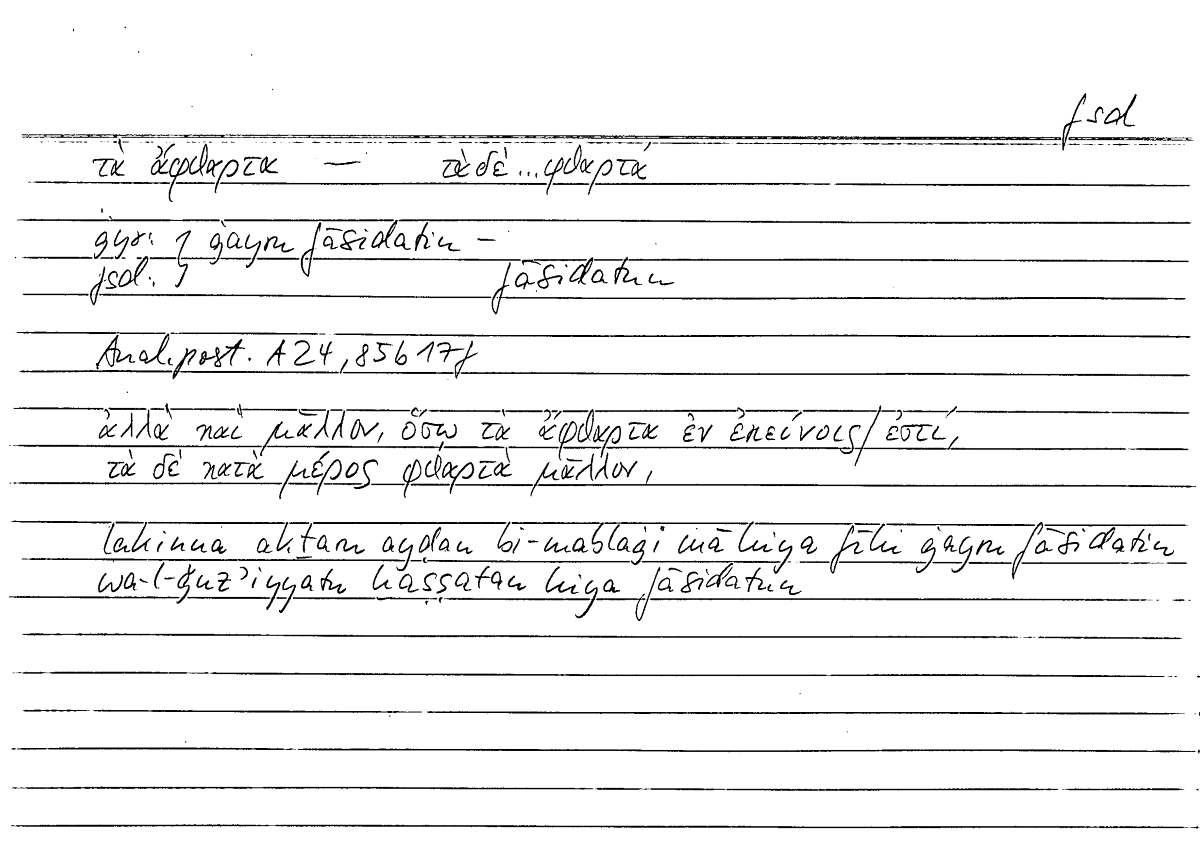 fsd
τὰ ἄφθαρτα — τὰ δὲ ... φθαρτά
ġyr: } ġayru fāsidatin –
fsd: } fāsidatun
Anal. post. A 24, 85b 17f
ἀλλὰ καὶ μᾶλλον, ὅσῳ τὰ ἄφθαρτα ἐν ἐκείνοις / ἐστί,
τὰ δὲ κατὰ μέρος φθαρτὰ μᾶλλον,
lakinna akṯaru ayḍan bi-mablaġi mā hiya fīhi ġayru fāsidatin
wa-l-ǧuz’iyyatu ḫāṣṣatan hiya fāsidatun